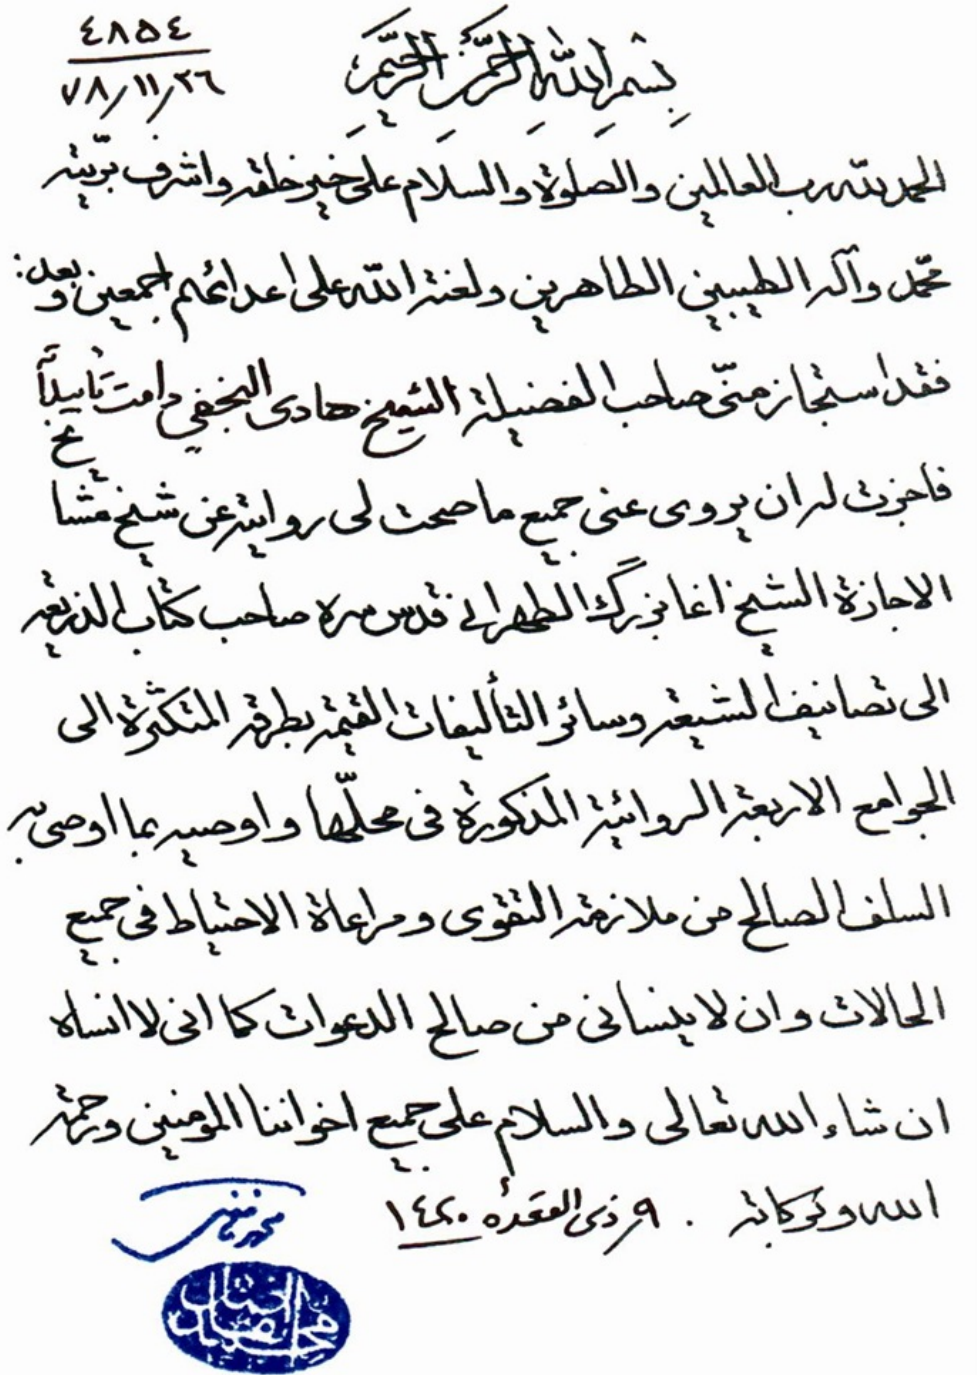 ٤٨٥٤
٧٨/١١/٢٦
بسم الله الرحمن الرحيم
الحمد لله رب العالمين والصلوة والسلام على خير خلقه واشرف بريته
محمّد وآله الطيبين الطاهرين ولعنة الله على اعدائهم اجمعين وبعد:
فقد استجاز منّي صاحب الفضيلة الشيخ هادى النجفي دامت تأييداته
فاجزت له ان يروى عنى جميع ما صحت لى روايته عن شيخ مشايخ
الاجازة الشيخ اغا بزرگ الطهرانى قدس سره صاحب كتاب الذريعة
الى تصانيف الشيعة وسائر التأليفات القيمة بطرقه المتكثرة الى
الجوامع الاربعة الروائية المذكورة فى محلّها واوصيه بما اوصى به
السلف الصالح من ملازمة التقوى ومراعاة الاحتياط فى جميع
الحالات وان لا ينسانى من صالح الدعوات كما انى لا انساه
ان شاء الله تعالى والسلام على جميع اخواننا المؤمنين ورحمة
الله وبركاته . ٩ ذى القعدة ١٤٢٠